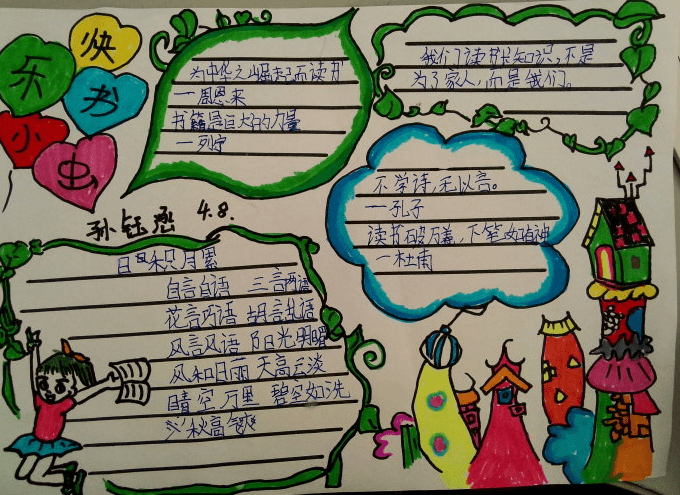 快
乐
书
小
虫
为中华之崛起而读书
—周恩来
书籍是巨大的力量
—列宁
我们读书长知识,不是
为了家人,而是我们。
不学诗,无以言。
—孔子
读书破万卷,下笔如有神
—杜甫
孙钰 4.8.
日日积月累
自言自语 三言两语
花言巧语 胡言乱语
风言风语 阳光明媚
风和日丽 天高云淡
晴空万里 碧空如洗
秋高气爽